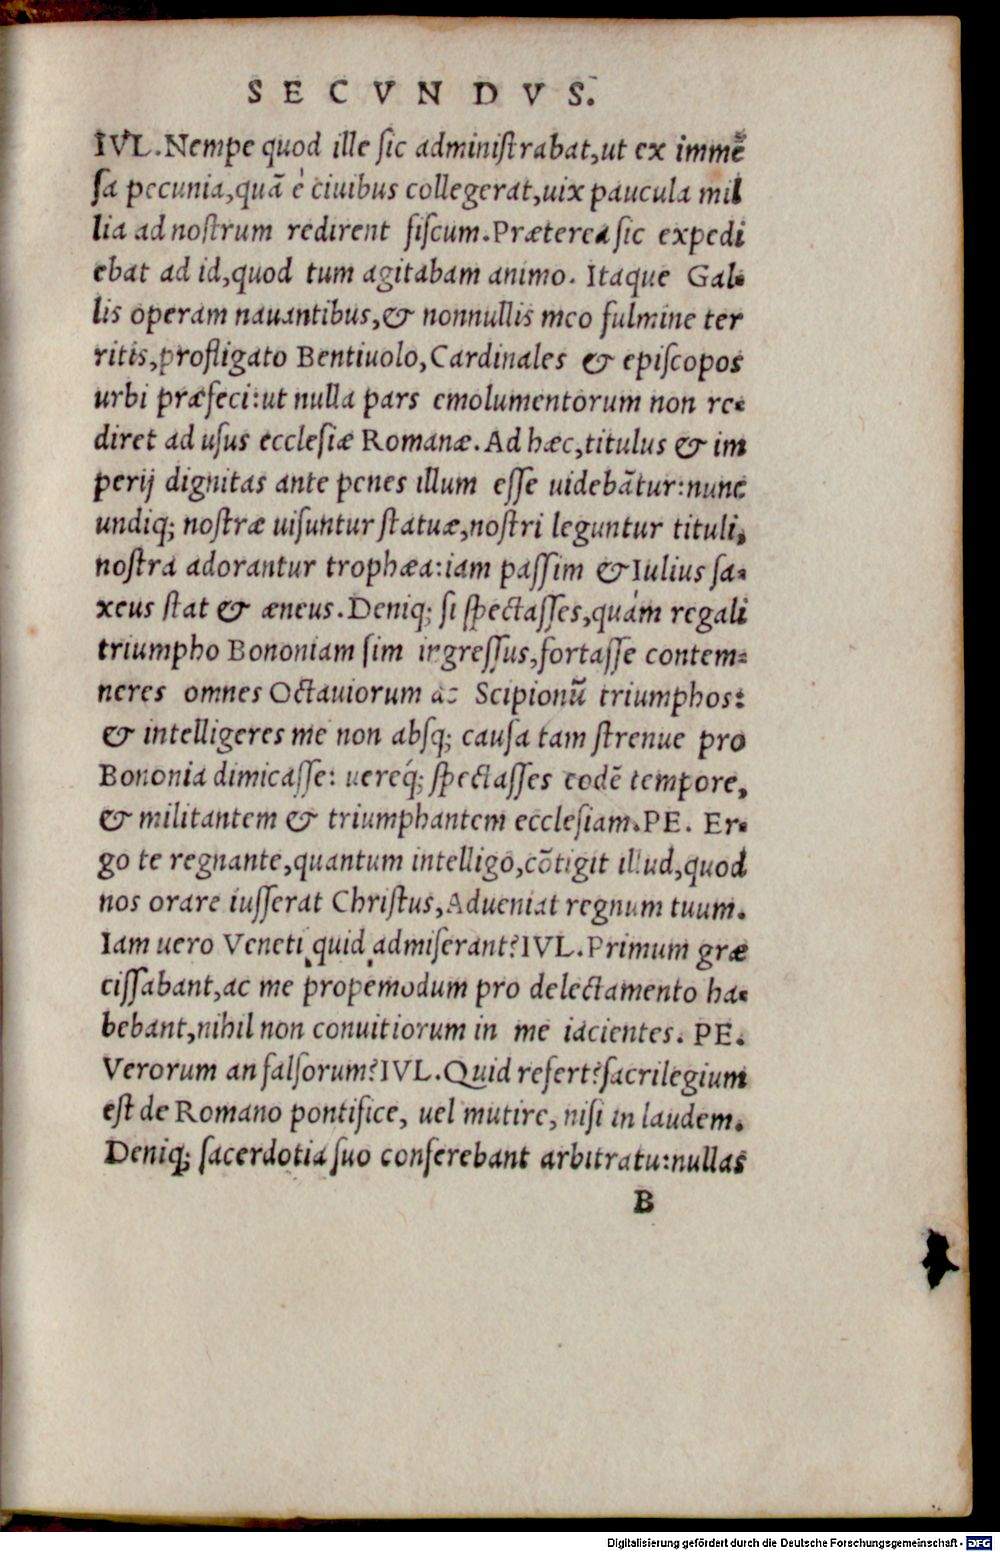 SECVNDVS.
IVL. Nempe quod ille ſic adminiſtrabat, ut ex immẽ
ſa pecunia, quã è ciuibus collegerat, uix paucula mil
lia ad noſtrum redirent fiſcum. Præterea ſic expedi
ebat ad id, quod tum agitabam animo. Itaque Gal-
lis operam nauantibus, & nonnullis meo fulmine ter
ritis, profligato Bentiuolo, Cardinales & epiſcopos
urbi præfeci: ut nulla pars emolumentorum non re-
diret ad uſus eccleſiæ Romanæ. Ad hæc, titulus & im
perij dignitas ante penes illum eſſe uidebãtur: nunc
undiq; noſtræ uiſuntur ſtatuæ, noſtri leguntur tituli,
noſtra adorantur trophæa: iam paſſim & Iulius ſa-
xeus ſtat & æneus. Deniq; ſi ſpectaſſes, quám regali
triumpho Bononiam ſim ingreſſus, fortaſſe contem-
neres omnes Octauiorum ac Scipionũ triumphos:
& intelligeres me non abſq; cauſa tam ſtrenue pro
Bononia dimicaſſe: uereq́; ſpectaſſes eodẽ tempore,
& militantem & triumphantem eccleſiam. PE. Er-
go te regnante, quantum intelligo, cõtigit illud, quod
nos orare iuſſerat Chriſtus, Adueniat regnum tuum.
Iam uero Veneti quid admiſerant? IVL. Primum græ
ciſſabant, ac me propemodum pro delectamento ha-
bebant, nihil non conuitiorum in me iacientes. PE.
Verorum an falſorum? IVL. Quid refert? ſacrilegium
eſt de Romano pontifice, uel mutire, niſi in laudem.
Deniq; ſacerdotia ſuo conferebant arbitratu: nullas
B
Digitalisierung gefördert durch die Deutsche Forschungsgemeinschaft - DFG